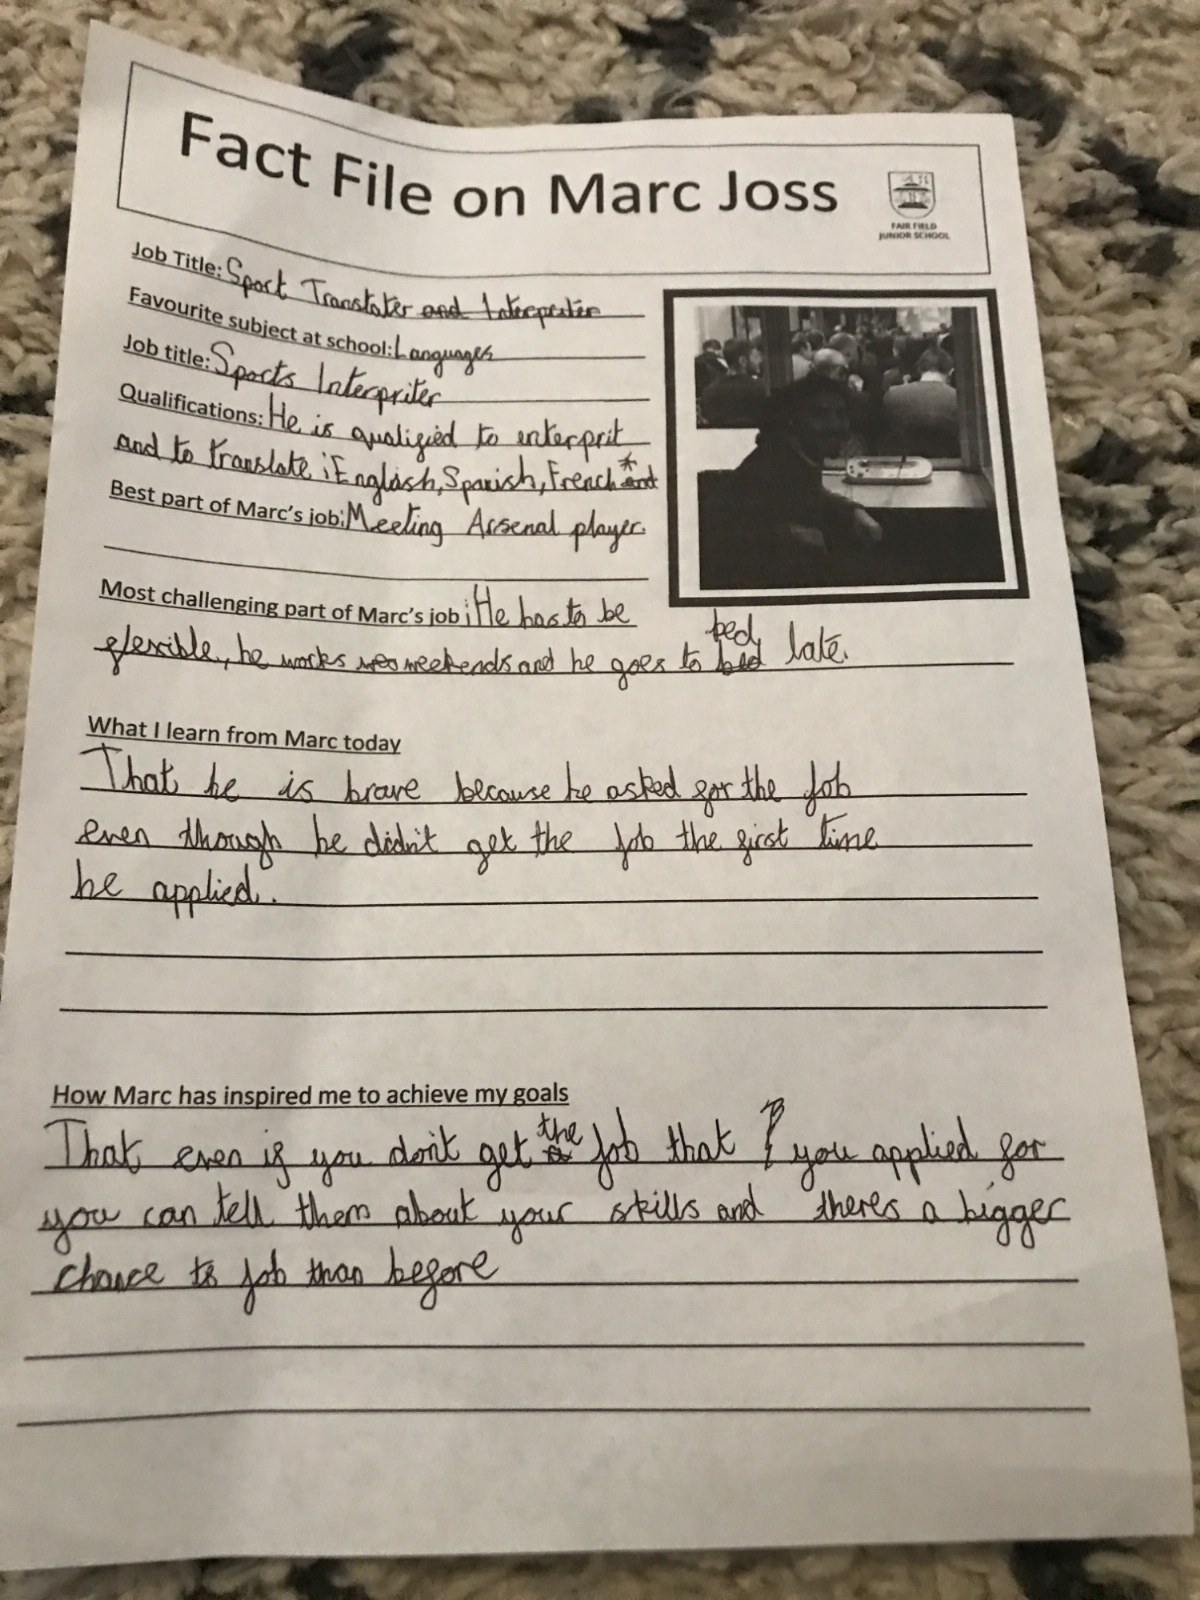 Fact File on Marc Joss
FAIR FIELD
JUNIOR SCHOOL
Job Title: Sport Translater and Interpriter
Favourite subject at school: Languages
Job title: Sports Interpriter
Qualifications: He is qualified to enterprit
and to translate : English, Spanish, French * and
Best part of Marc's job: Meeting Arsenal player.
Most challenging part of Marc's job : He has to be
flexible, he works weekends and he goes to bed late.
What I learn from Marc today
That he is brave because he asked for the job
even though he didn't get the job the first time
he applied.
How Marc has inspired me to achieve my goals
That even if you don't get the job that you applied for
you can tell them about your skills and theres a bigger
chance to job than before